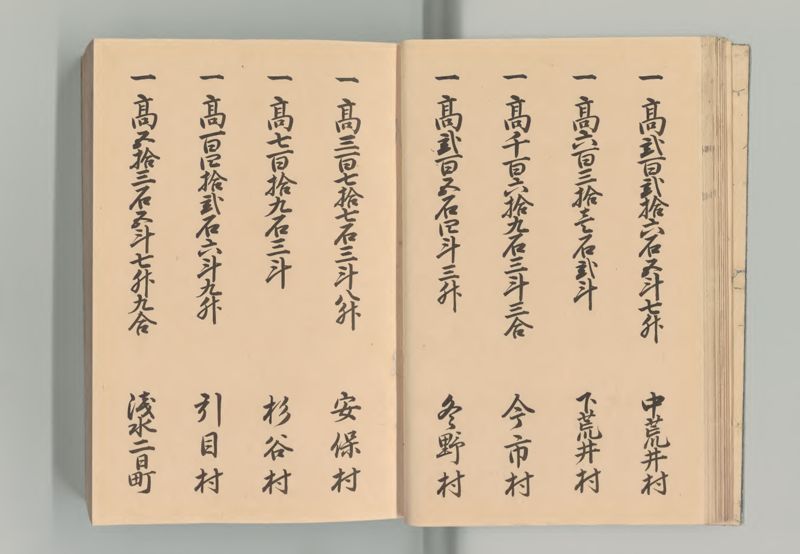 一高弐百弐拾六石五斗七升 中荒井村
一高六百三拾壱石弐斗 下荒井村
一高千百六拾九石三斗三合 今市村
一高弐百五石四斗三升 冬野村
一高三百七拾七石三斗八升 安保村
一高七百拾九石三斗 杉谷村
一高百四拾弐石六斗九升 引目村
一高五拾三石五斗七升九合 浅水二日町